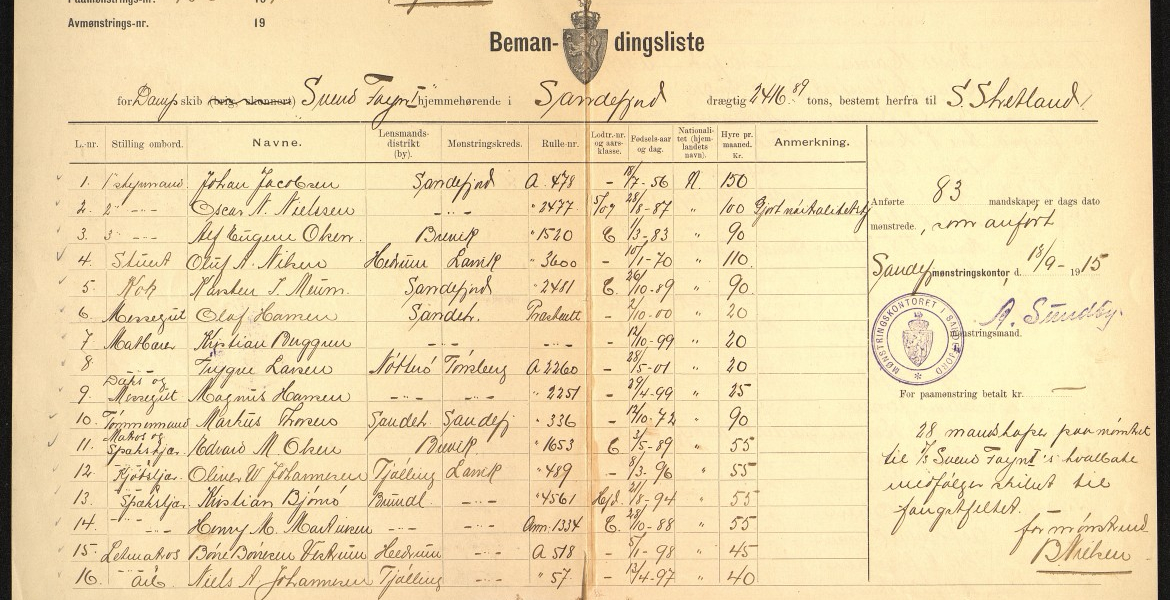 Paamønstrings-nr.
Avmønstrings-nr. 19
Bemandingsliste
for Damp skib (brig, skonnert) Svend Foyn I hjemmehørende i Sandefjord drægtig 2416.89 tons, bestemt herfra til S. Shetland
L.-nr. Stilling ombord. Navne. Lensmandsdistrikt (by). Mønstringskreds. Rulle-nr. Lodtr.-nr. og aarsklasse. Fødsels-aar og dag. Nationalitet (hjemlandets navn). Hyre pr. maaned. Kr. Anmerkning.
1. 1 styrmand Johan Jacobsen Sandefjord A. 478 - 18/7-56 N. 150
2. 2 -"- Oscar N. Nielssen -"- " 2477 5/07 28/8-87 " 100
3. 3 -"- Alf Eugene Olsen Brevik " 1520 E 1/3-83 " 90
4. Stuert Oluf A. Nilsen Hedrum Larvik " 3600 - 10/1-70 " 110
5. Kok Karsten I. Meum Sandefjord " 2481 E. 26/10-89 " 90
6. Messegut Olaf Hansen Sandeh. - 2/10-00 " 20
7. Kristian Buggum -"- -"- -"- - 12/10-99 " 20
8. -"- Trygve Larsen Nøtterø Tønsberg A 2260 - 28/5-01 " 20
9. Dæks og Messegut Magnus Hansen -"- -"- " 2251 - 29/4-99 " 25
10. Tømmermand Markus Thoresen Sandeh. Sandefj " 336 - 12/10-72 " 90
11. Matros og Spækskjær. Edvard M. Olsen Brevik " 1653 E 3/5-89 " 55
12. Kjøtskjær. Oliver W. Johannesen Tjølling Larvik " 489 - 8/3-96 " 55
13. Spækskjær. Kristian Bjønnø Brunl. -"- " 4561 21/8-94 " 55
14. -"- -"- Henry M. Martinsen -"- -"- Ann. 1334 E. 28/10-88 " 55
15. Letmatros Hedrum -"- A 518 - 5/1-98 " 45
16. Niels A. Johannesen Tjølling -"- " 57 - 13/4-97 " 40
Anførte 83 mandskaper er dags dato
mønstrede, som anført
Sandefj mønstringskontor, d. 18/9-1915
MØNSTRINGSKONTORET I SANDEFJORD
A. Sundby
mønstringsmand.
For paamønstring betalt kr. —
28 mandskaper paamønstret
til Svend Foyn I's hvalbaate
medfølger skibet til
fangstfeltet.
for mønstrmd
B. Nielsen